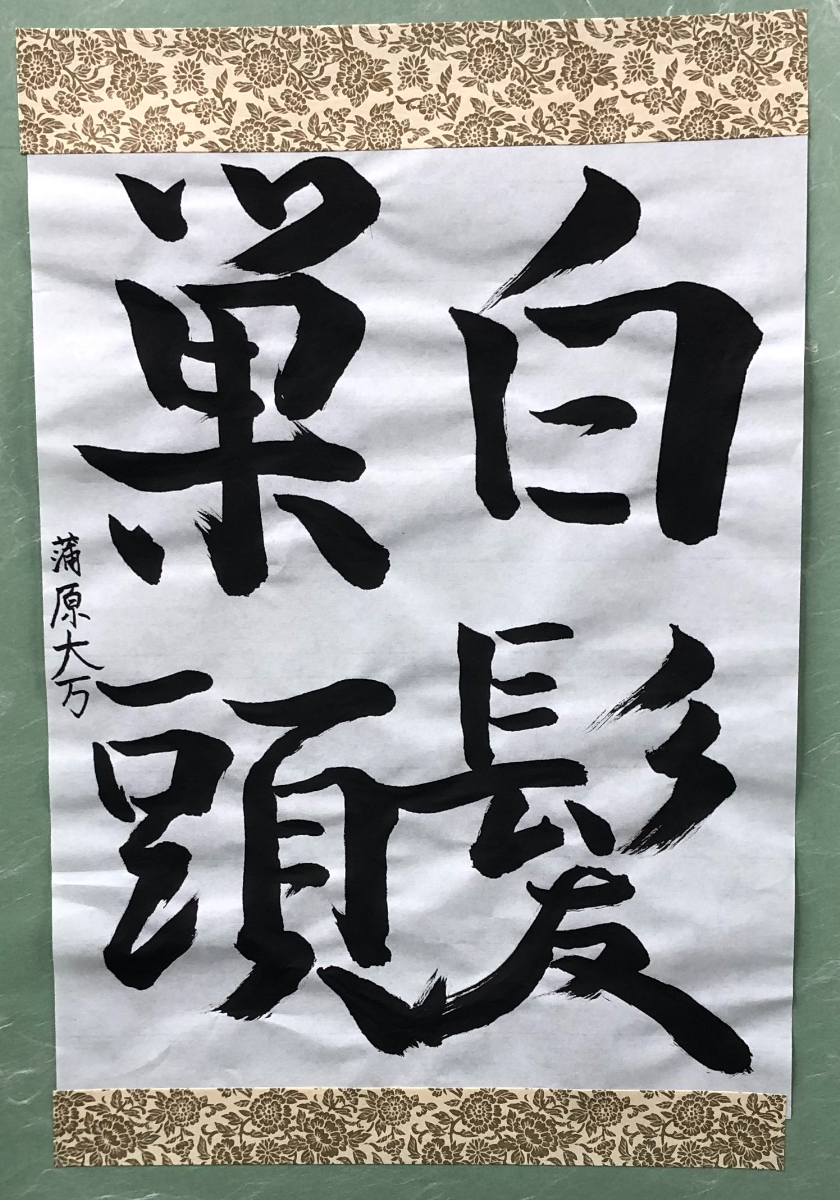 白髪
巣頭
蒲原大万